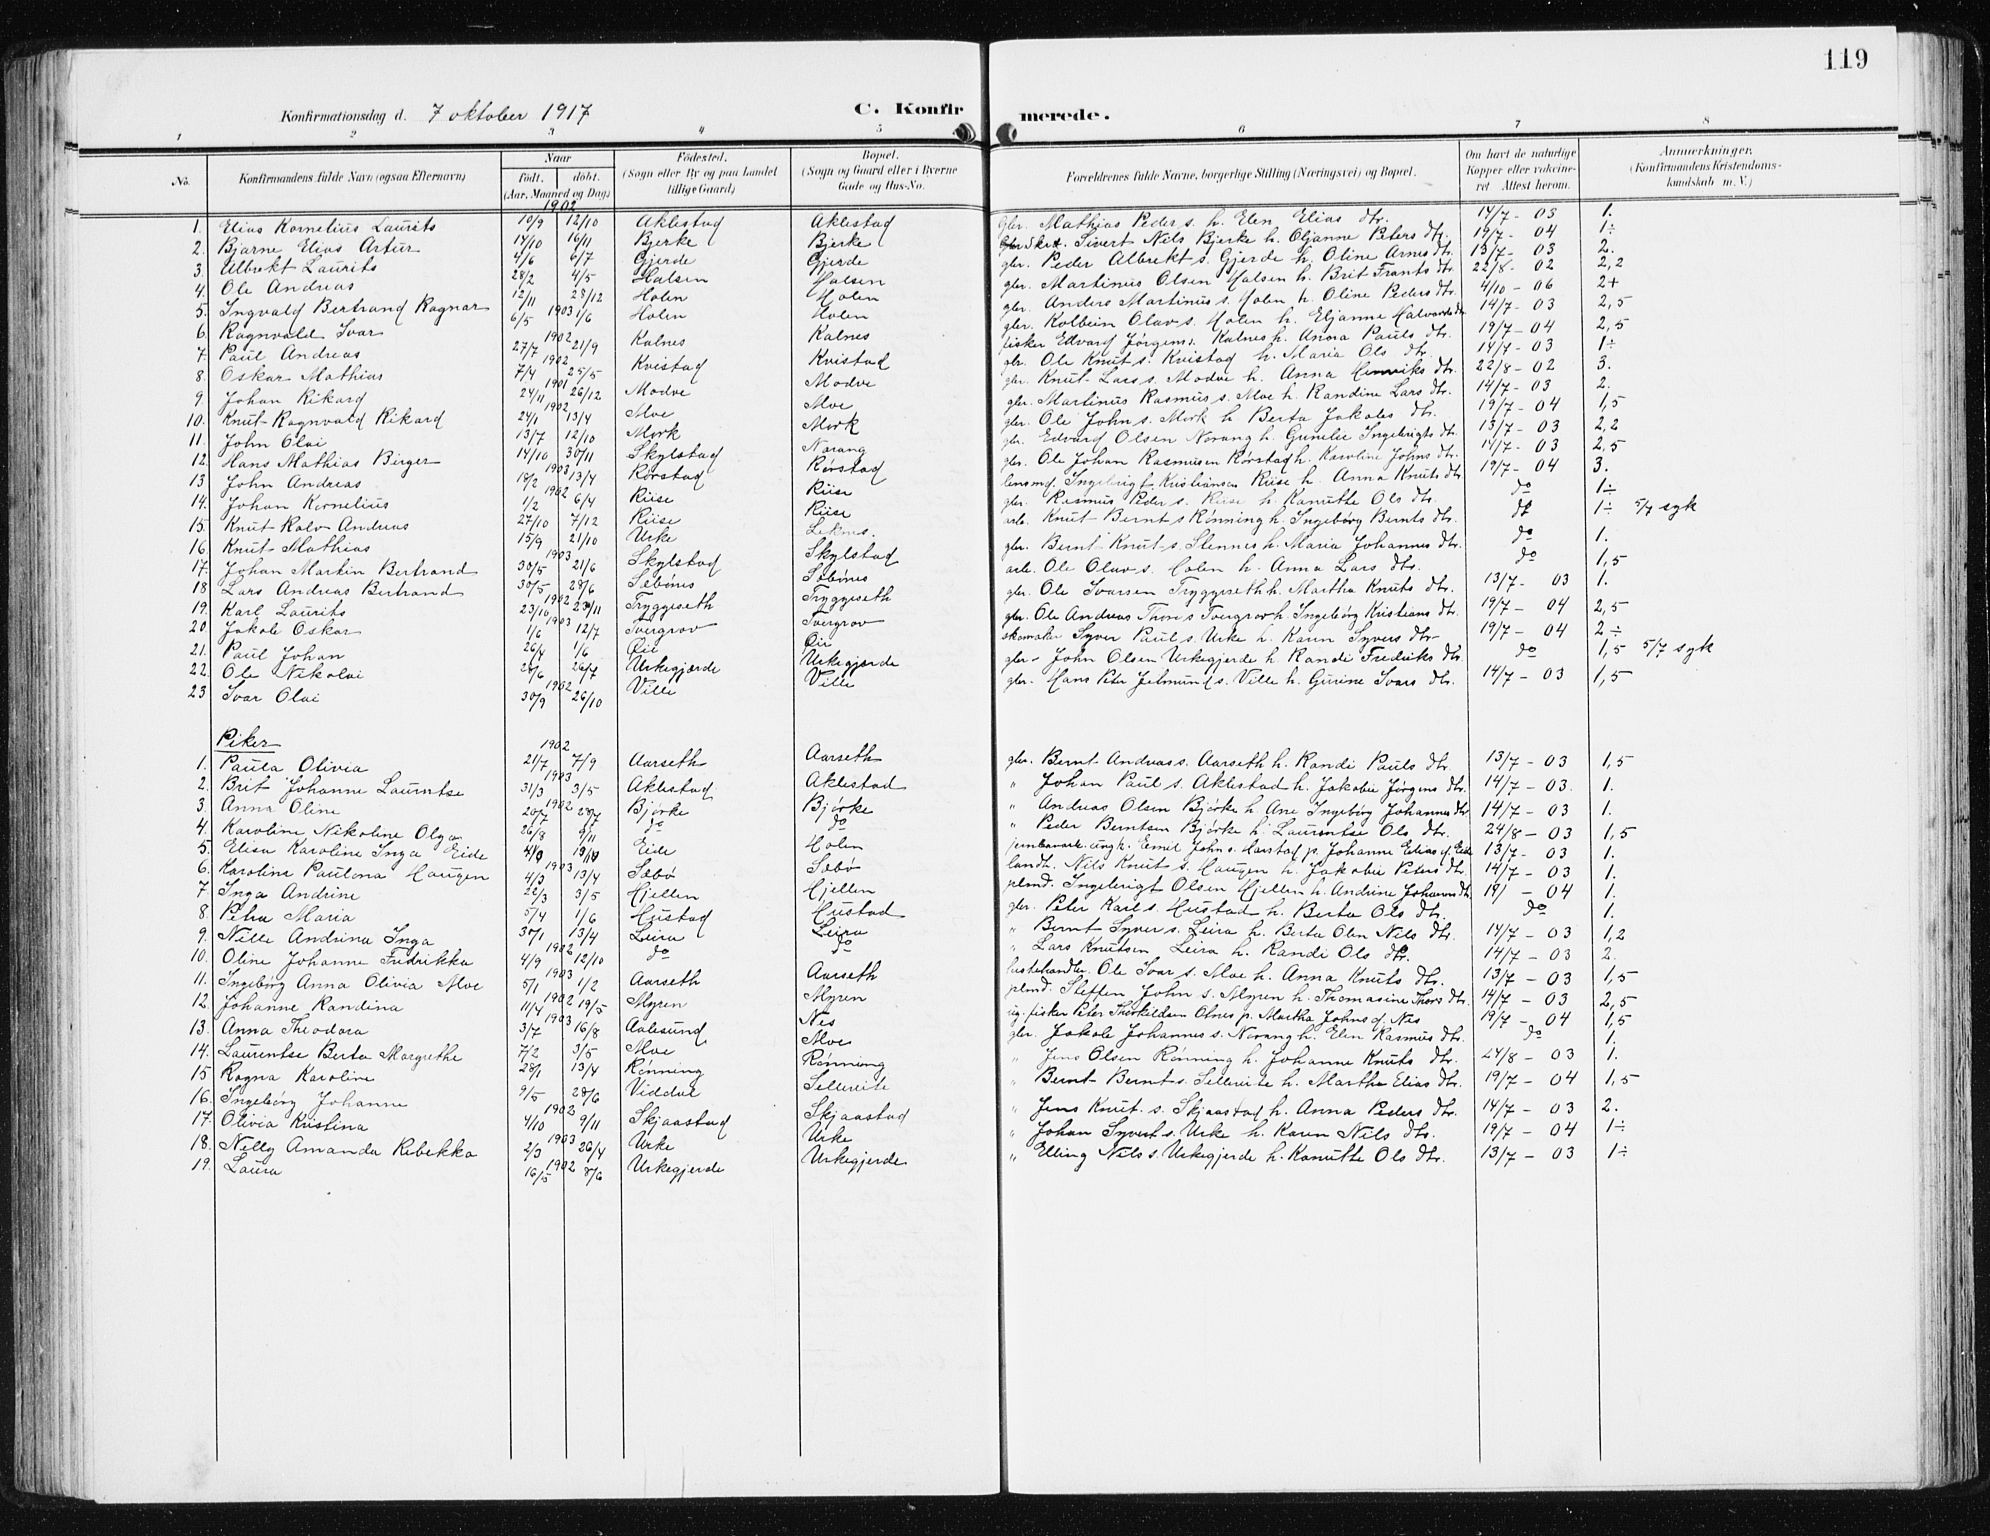 119
Konfirmationsdag d. 7 oktober 1917 C. Konfirmerede.
1 2 3 4 5 6 7 8
No. Konfirmandens fulde Navn (ogsaa Efternavn) Naar født. døbt. (Aar, Maaned og Dag) Fødested. (Sogn eller By og paa Landet tillige Gaard) Bopæl. (Sogn og Gaard eller i Byerne Gade og Hus-No. Forældrenes fulde Navne, borgerlige Stilling (Næringsvei) og Bopæl. Om havt de naturlige Kopper eller vaccineret Attest herom. Anmærkninger. (Konfirmandens Kristendomskundskab m. V.)
1902
1. Elias Kornelius Laurits 10/9 12/10 Aklestad Aklestad gbr. Mathias Peder s. h. Elen Elias dtr. 14/7 - 03 1.
2. Bjarne Elias Artur 14/10 16/11 Bjerke Bjerke Sivert Nils Bjerke h. Oljanna Peters dtr. 19/7 - 04 1÷
3. Albrekt Laurits 4/6 6/7 Gjerde Gjerde gbr. Peder Albrekt s. Gjerde h. Oline Arnes dtr. 13/7 - 03 2.
4. Ole Andreas 28/2 4/5 Halsen Halsen gbr. Martinus Olsen Halsen h. Brit Frants dtr. 22/8 - 02 2,2
5. Ingvald Bertrand Ragnar 12/11 28/12 Holen Holen gbr. Anders Martinus s. Holen h. Oline Peders dtr. 4/10 - 06 2+
6. Ragnvald Ivar 1903 6/5 1/6 Holen Holen gbr. Kolbein Olav s. Holen h. Eljanne Halvards dtr. 14/7 - 03 2,5
7. Paul Andreas 1902 27/7 21/9 Kalnes Kalnes fisker Edvard Jørgen s. Kalnes h. Anna Pauls dtr. 19/7 - 04 2,5
8. Oskar Mathias 1902 7/4 25/5 Kvistad Kvistad gbr. Ole Knut s. Kvistad h. Maria Ols dtr. 14/7 - 03 1÷
9. Johan Rikard 1901 24/11 26/12 Modve Modve gbr. Knut Lars s. Modve h. Anna Henriks dtr. 22/8 - 02 3.
10. Knut Ragnvald Rikard 1902 24/1 13/4 Moe Moe gbr. Martinus Rasmus s. Moe h. Randine Lars dtr. 14/7 - 03 2.
11. John Olai 13/7 12/10 Mork Mork gbr. Ole John s. Mork h. Berta Jakobs dtr. 19/7 - 04 1,5
12. Hans Mathias Birger 14/10 30/11 Skylstad Norang gbr. Edvard Olsen Norang h. Gunelie Ingebrigts dtr. 13/7 - 03 2,2
13 John Andreas 1903 18/2 13/4 Rørstad Rørstad gbr. Ole Johan Rasmusen Rørstad h. Karoline Johns dtr. 14/7 - 03 2,5
14. Johan Kornelius 1902 1/2 6/4 Riise Riise lensmd. Ingebrigt Kristiansen Riise h. Anna Knuts dtr. 19/7 - 04 3.
15. Knut Kalv Andreas 27/10 7/12 Riise Riise gbr. Rasmus Peder s. Riise h. Kanutte Ols dtr. do 1÷
16. Knut Mathias 15/9 21/10 Urke Leknes. arb. Knut Bernt s Rønning h. Ingebørg Bernts dtr. do 1÷ 5/7 syk
17. Johan Martin Bertrand 1903 30/5 21/6 Skylstad Skylstad gbr. Bernt Knut s. Stennes h. Maria Johannes dtr. do 1.
18 Lars Andreas Bertrand 30/5 28/6 Sæbønes Sæbønes arb. Ole Olav s. Holen h. Anna Lars dtr. do 1,5
19. Karl Laurits 1902 23/10 23/11 Tryggeseth Tryggeseth gbr. Ole Ivarsen Tryggeseth h. Martha Knuts dtr. 13/7 - 03 1.
20. Jakob Oskar 1903 1/6 12/7 Tvergrov Tvergrov gbr. Ole Andreas Thore s Tvergrov h. Ingebørg Kristians dtr. 19/7 - 04 2,5
21. Paul Johan 26/4 1/6 Øie Øie skomaker Syver Paul s. Urke h. Karen Syvers dtr. 19/7 - 04 2÷
22. Ole Nikolai 28/6 26/7 Urkegjærde Urkegjærde gbr. John Olsen Urkegjerde h. Randi Fredriks dtr. do 1,5 5/7 syk
23 Ivar Olai 1902 30/9 26/10 Ville Ville gbr. Hans Peter Jetmund s. Ville h. Gurine Ivars dtr. 14/7 - 03 1,5
Piker
1. Paula Olivia 1902 21/7 7/9 Aarseth Aarseth gbr. Bernt Andreas s. Aarseth h. Randi Pauls dtr. 13/7 - 03 1,5
2. Brit Johanne Laurentse 1903 31/3 3/5 Aklestad Aklestad " Johan Paul s. Aklestad h. Jakobie Jørgens dtr. 14/7 - 03. 1.
3. Anna Oline 1902 20/7 28/7 Bjørke Bjørke " Andreas Olsen Bjørke h. Ane Ingebørg Johannes dtr 14/7 - 03 1.
4. Karoline Nikoline Olga 26/8 9/11 do do " Peder Berntsen Bjørke h. Laurentse Ols dtr. 24/8 - 03 1,5
5. Elisa Karoline Inga Eide Eide Holen Emil John s. Harstad p. Johanne Elias d. Eide 13/7 - 03 1.
6. Karoline Paulena Haugen 1903 4/3 13/4 Sæbø Sæbø landh. Nils Knut s. Haugen h. Jakobie Peters dtr. 14/7 - 03 1.
7. Inga Andrine 22/3 3/5 Hjellen Hjellen plmd. Ingebrigt Olsen Hjellen h. Andrine Johannes dtr. 19/ - 04 1.
8. Petra Maria 5/4 1/6 Hustad Hustad gbr. Peter Karl s. Hustad h. Berta Ols dtr. do 1.
9. Nille Andrina Inga 30/1 13/4 Leira Leira " Bernt Syver s. Leira h. Berta Olen Nils dtr. 14/7 - 03 1,2
10. Oline Johanne Fredrikka 1902 4/9 12/10 do do " Lars Knutsen Leira h. Randi Ols dtr. 14/7 - 03 2.
11. Ingebørg Anna Olivia Moe 1903 5/1 1/2 Aarseth Aarseth hestehandler Ole Ivar s. Moe h. Anna Knuts dtr. 13/7 - 03 1,5
12. Johanne Randina 1902 11/4 19/5 Myren Myren plmd. Steffen John s. Myren h. Thomasine Thors dtr. 14/7 - 03 2,5
13. Anna Theodora 1903 3/7 16/8 Aalesund Nes ug. fisker Peter Thorkildsen Olnes p. Martha Johns d. Nes 19/7 - 04 1,5
14. Laurentse Berta Margrethe 7/2 3/5 Moe Moe gbr. Jakob Johannes s. Norang h. Elen Rasmus dtr. do 1.
15 Ragna Karoline 28/1 13/4 Rønning Rønning " Jens Olsen Rønning h. Johanne Knuts dtr. 24/8 - 03 1.
16. Ingebørg Johanne 9/5 28/6 Viddal Sellereite " Bernt Bernt s. Sellereite h. Martha Elias dtr. 19/7 - 04 1,5
17. Olivia Kristina 1902 4/10 9/11 Skjaastad Skjaastad " Jens Knut s. Skjaastad h. Anna Peders dtr. 14/7 - 03 2.
18. Nelly Amanda Rebekka 1903 2/3 26/4 Urke Urke " Johan Syvert s. Urke h. Karen Nils dtr. 19/7 - 04 1÷
19. Laura 1902 16/5 8/6 Urkegjerde Urkegjerde " Elling Nils s. Urkegjerde h. Kanutte Ols dtr. 13/7 - 03 1÷